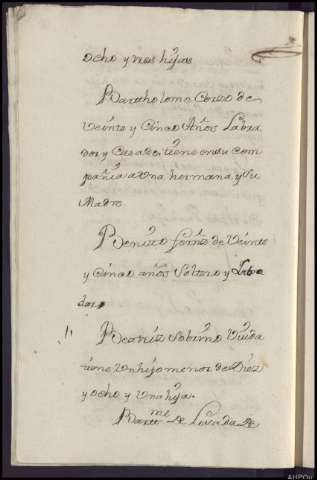 ocho y tres hijas
Barttholome Corzo de
Veinte y Cinco Años Labra
dor y Casado, tiene en su com
pañia a Una hermana, y Su
Madre
Benitto Gomz de Veinte
y Cinco años Soltero y Labra
dor
Beatriz Sobrino Viuda
tiene Un hijo menor de Diez
y ocho y Una hija.
Bartt.me de Losada de
AHPOu